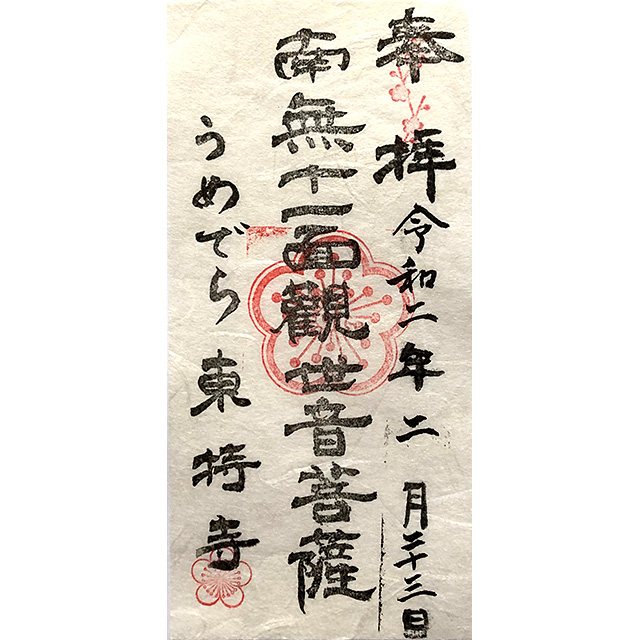 奉拝 令和二年二月二十三日
南無十一面觀世音菩薩
うめでら 東持寺